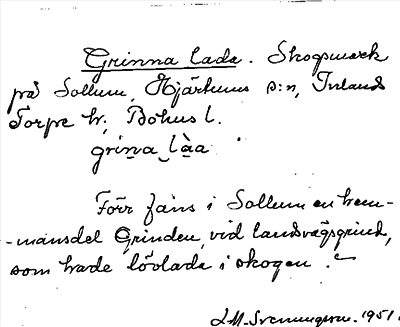 Grinna lada. Skogsmark
på Sollum, Hjärtums s:n, Inlands
Torpe hr, Bohus l.
grin̲a lὰa
Förr fans i Sollum en hem-
-mansdel Grinden, vid landsvägsgrind,
som hade lövlada i skogen.
J.M. Svenungsson. 1951.